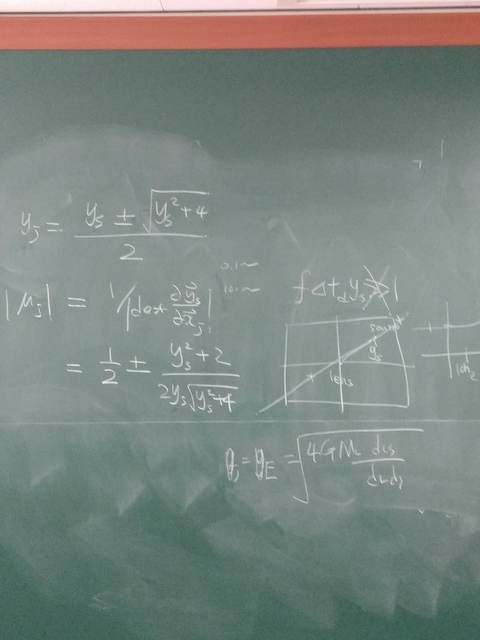 y_j = \frac{y_s ± \sqrt{y_s^2 + 4}}{2}
|μ_j| = 1/|det \frac{∂\vec{y}_s}{∂\vec{x}_j}|
= \frac{1}{2} ± \frac{y_s^2 + 2}{2y_s\sqrt{y_s^2 + 4}}
0.1~
10~
f Δt_d y_s ≫ 1
source
y_s
lens
θ = θ_E = \sqrt{4GM \frac{d_{LS}}{d_L d_S}}